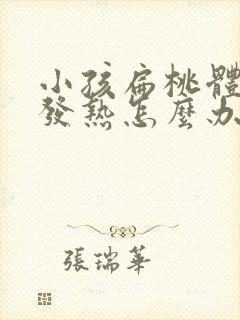 小孩扁桃體
發熱怎麼办
張瑞華